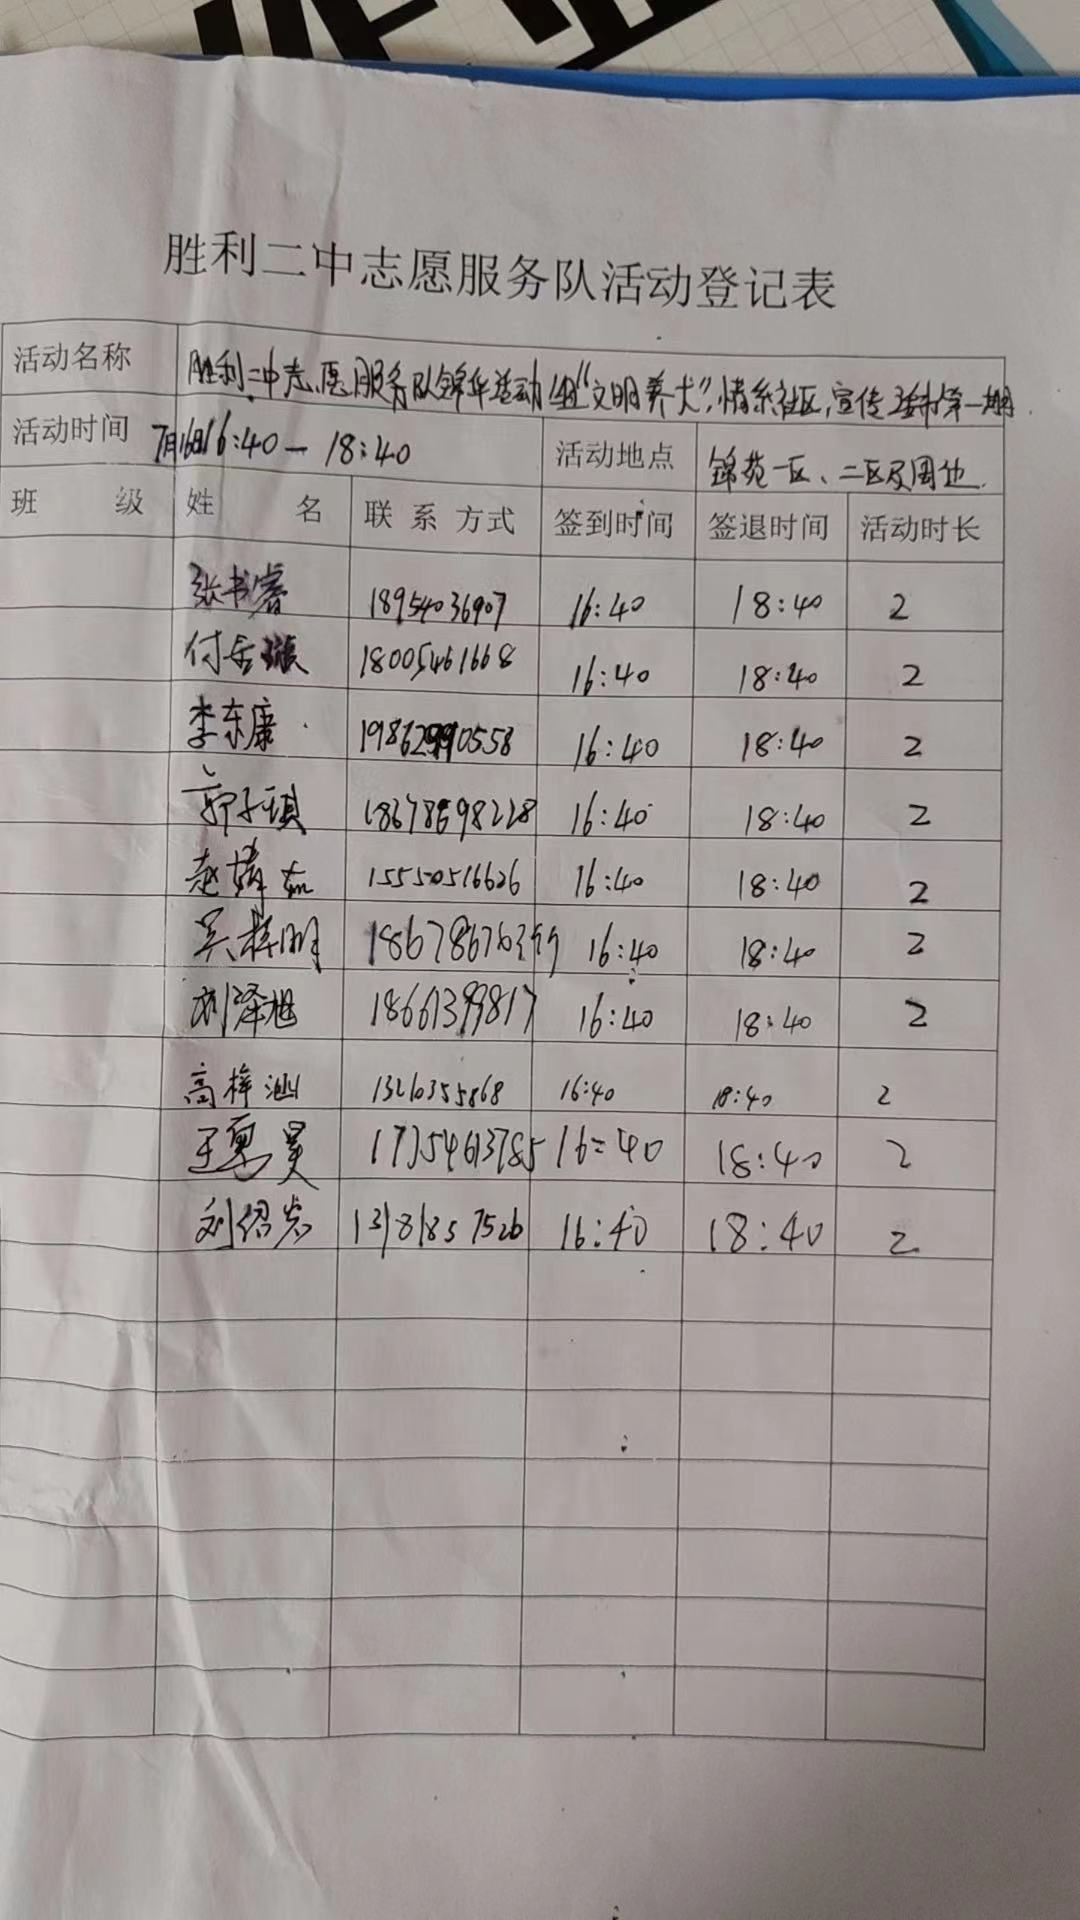 胜利二中志愿服务队活动登记表
活动名称 胜利二中志愿服务队锦华活动组“文明养犬”,情系社区,宣传 第一期.
活动时间 7月16日16:40—18:40 活动地点 锦苑一区、二区及周边.
班 级 姓 名 联系方式 签到时间 签退时间 活动时长
张书睿 18954036907 16:40 18:40 2
付 18005461668 16:40 18:40 2
李东康 19862990558 16:40 18:40 2
郭子琪 18678698228 16:40 18:40 2
赵婧 15550516626 16:40 18:40 2
吴梓明 16:40 18:40 2
刘泽旭 18661399817 16:40 18:40 2
高梓涵 13210355868 16:40 18:40 2
王 昊 17354613785 16:40 18:40 2
刘绍岩 13181857526 16:40 18:40 2